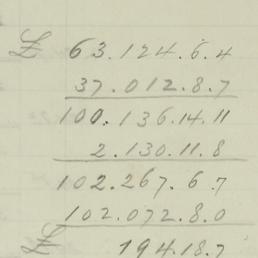 £ 63.124.6.4
37.012.8.7
100.136.14.11
2.130.11.8
102.267.6.7
102.072.8.0
£ 194.18.7